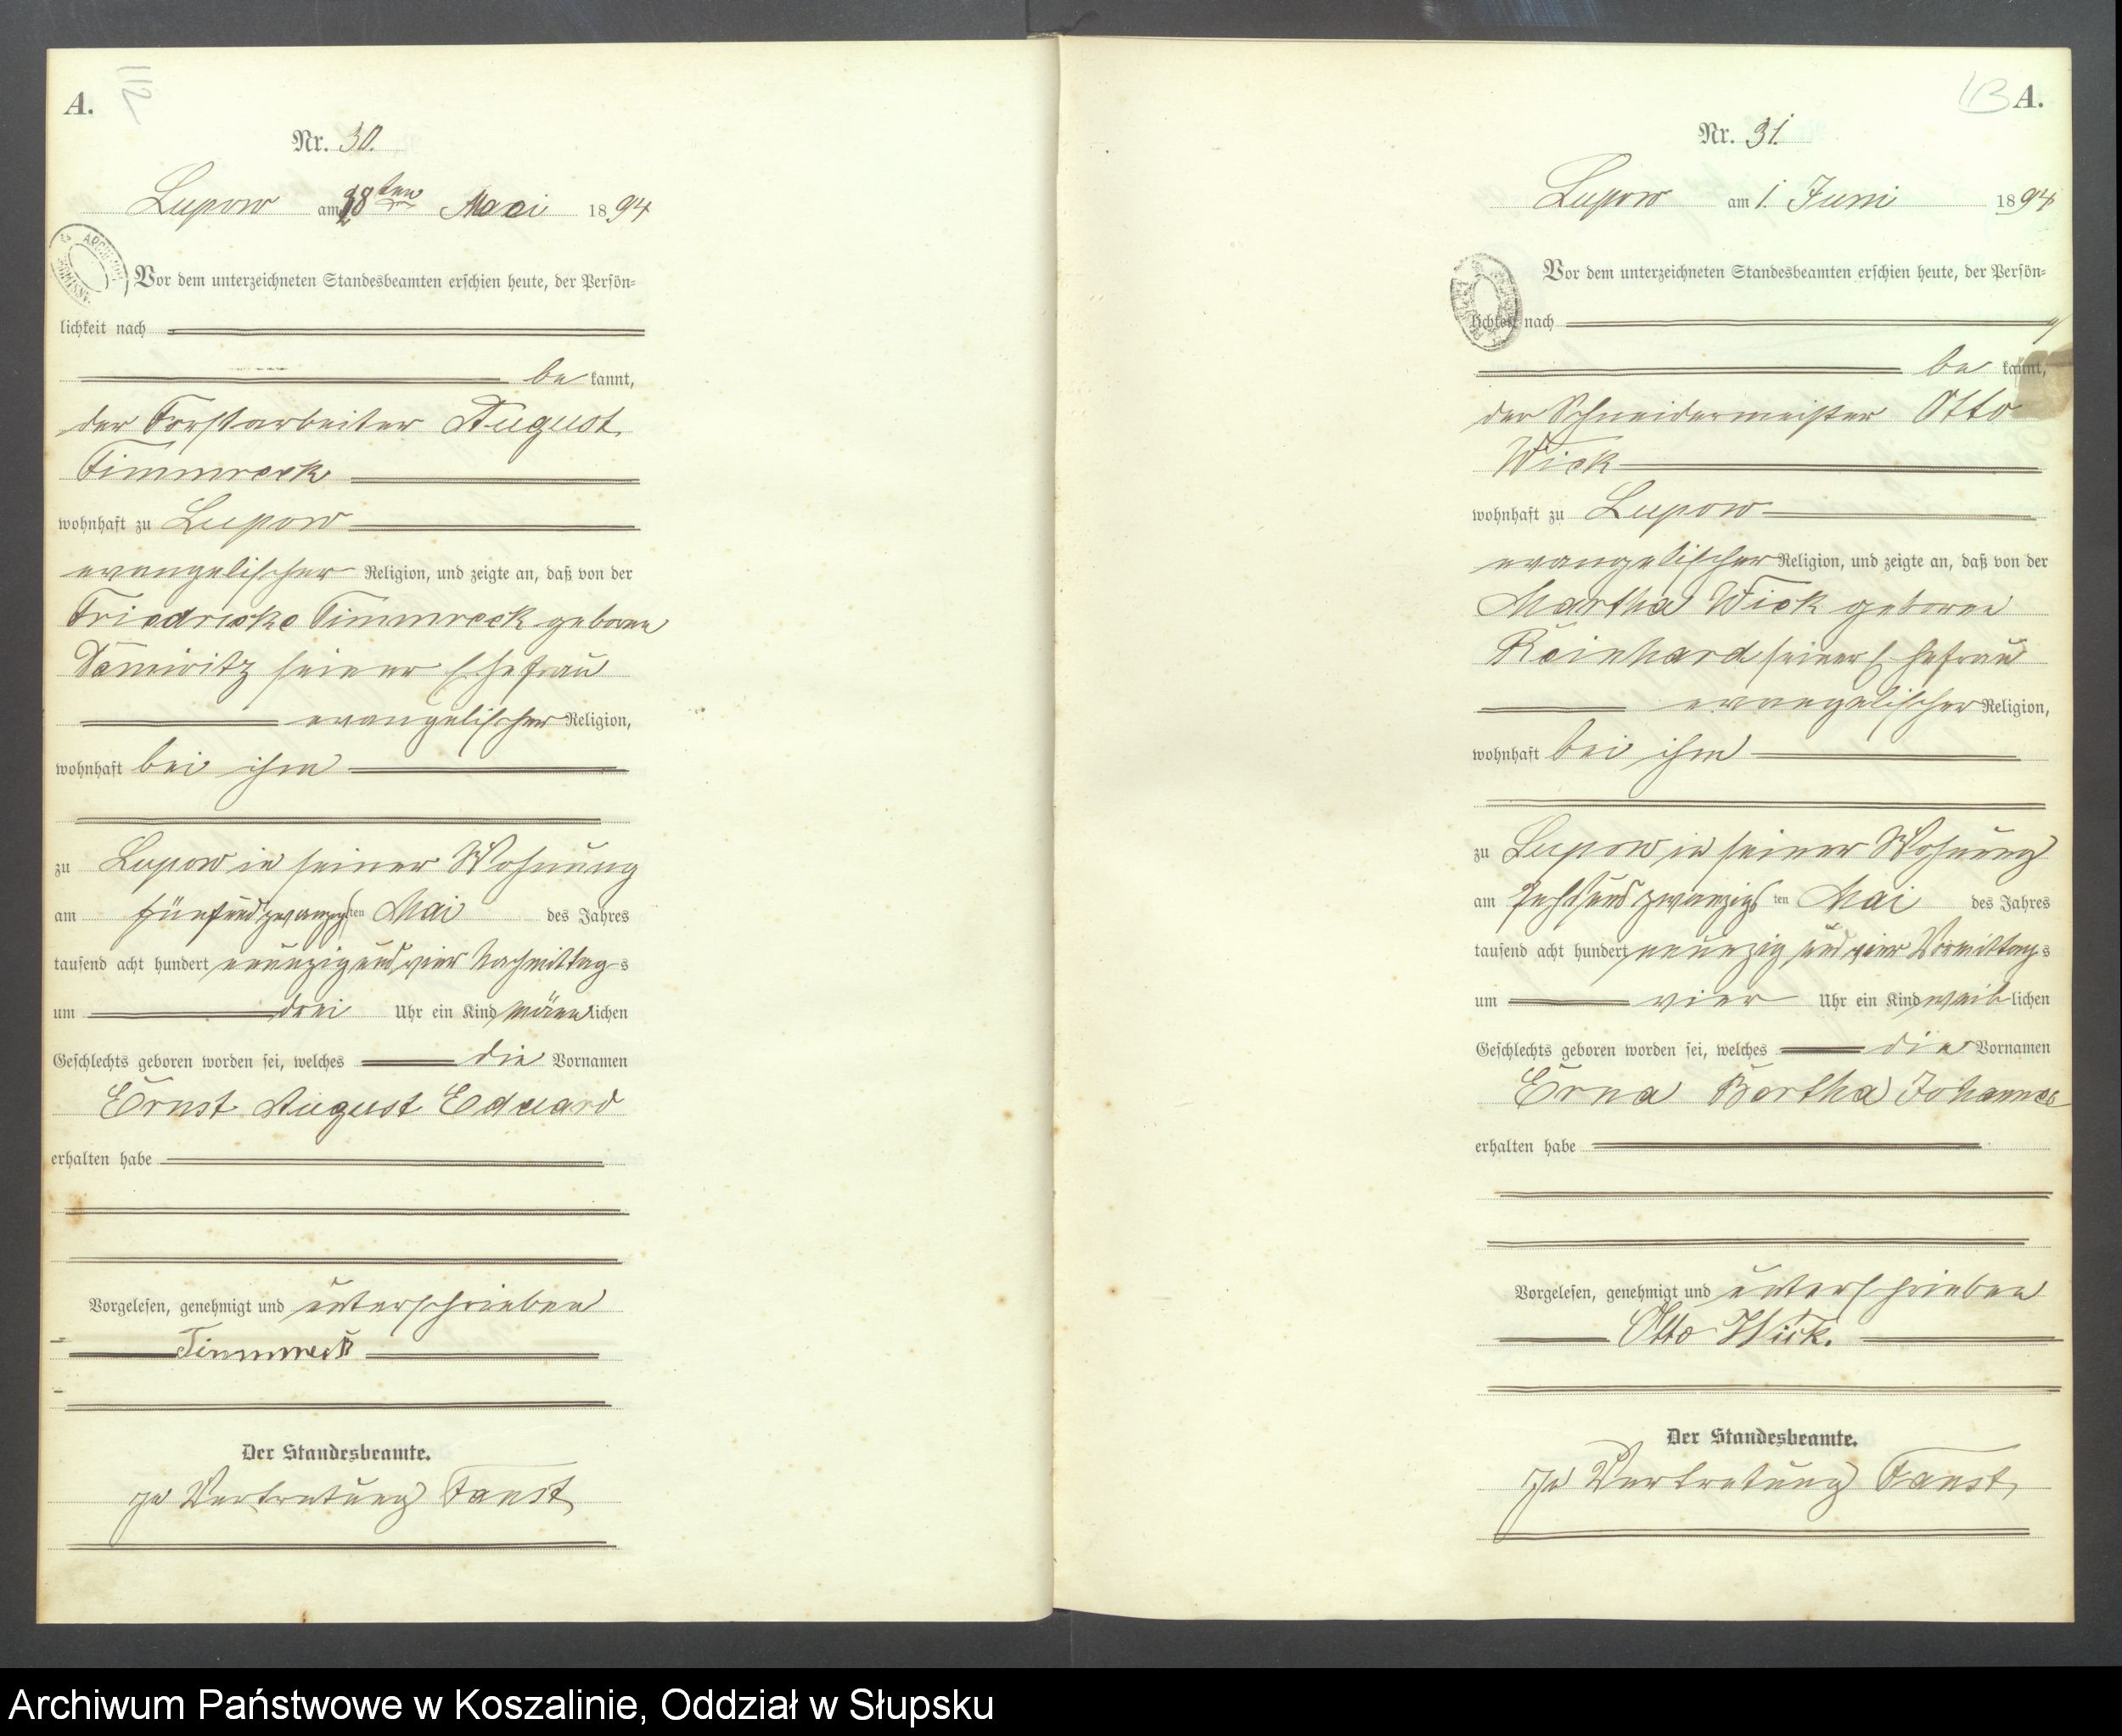 A.
112
Nr. 30.
Lupow am 28ten Mai 1894
Vor dem unterzeichneten Standesbeamten erschien heute, der Persön-
lichkeit nach
be kannt,
der Forstarbeiter August
Timmreck
wohnhaft zu Lupow
evangelischer Religion, und zeigte an, daß von der
Friedricke Timmreck geborne
seiner Ehefrau
evangelischer Religion,
wohnhaft bei ihm
zu Lupow in seiner Wohnung
am fünfundzwanzigsten Mai des Jahres
tausend acht hundert neunzig und vier Nachmittags
um drei Uhr ein Kind männlichen
Geschlechts geboren worden sei, welches die Vornamen
Ernst August Eduard
erhalten habe
Vorgelesen, genehmigt und unterschrieben
Timmreck
Der Standesbeamte.
In Vertretung Faust
113 A.
Nr. 31.
Lupow am 1. Juni 1894
Vor dem unterzeichneten Standesbeamten erschien heute, der Persön-
lichkeit nach
be kannt,
der Schneidermeister Otto
Wick
wohnhaft zu Lupow
evangelischer Religion, und zeigte an, daß von der
Martha Wick geborne
Reinhard seiner Ehefrau
evangelischer Religion,
wohnhaft bei ihm
zu Lupow in seiner Wohnung
am sechsundzwanzigsten Mai des Jahres
tausend acht hundert neunzig und vier Vormittags
um vier Uhr ein Kind weiblichen
Geschlechts geboren worden sei, welches die Vornamen
Erna Bertha Johanna
erhalten habe
Vorgelesen, genehmigt und unterschrieben
Otto Wick.
Der Standesbeamte.
In Vertretung Faust
Archiwum Państwowe w Koszalinie, Oddział w Słupsku